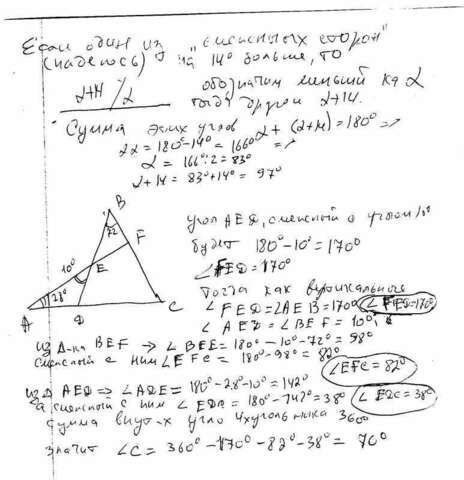 Если один из "смежных сторон"
(надеюсь) на 14° больше, то
α+14 / α обозначим меньший как α
тогда другой α+14.
Сумма этих углов α + (α+14) = 180° =>
2α = 180° - 14° = 166° =>
α = 166° : 2 = 83°
α+14 = 83° + 14° = 97°
B
72
F
10°
E
28°
A
D
C
угол AED, смежный с углом 10°
будет 180° - 10° = 170°
∠FED = 170°
Тогда как вертикальные
∠FED = ∠AEB = 170° ∠FED = 170°
∠AED = ∠BEF = 10°,
из Δ-ка BEF => ∠BFE = 180° - 10° - 72° = 98°
смежный с ним ∠EFC = 180° - 98° = 82°
∠EFC = 82°
из Δ AED => ∠ADE = 180° - 28° - 10° = 142°
а смежный с ним ∠EDC = 180° - 142° = 38° ∠EDC = 38°
сумма внут-х угло 4хугольника 360°
значит ∠C = 360° - 170° - 82° - 38° = 70°